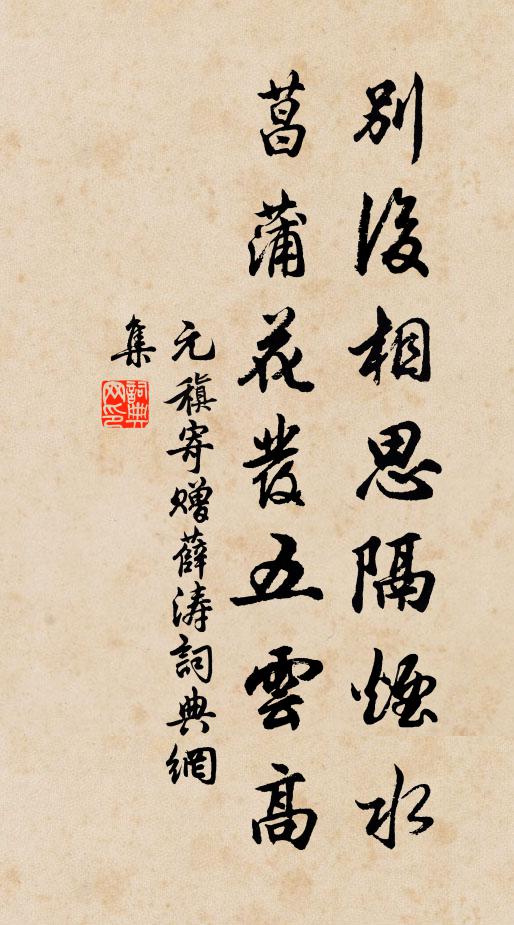 別後相思隔煙水
菖蒲花發五雲高
元稹寄贈薛濤詞典網
集
詞典網印